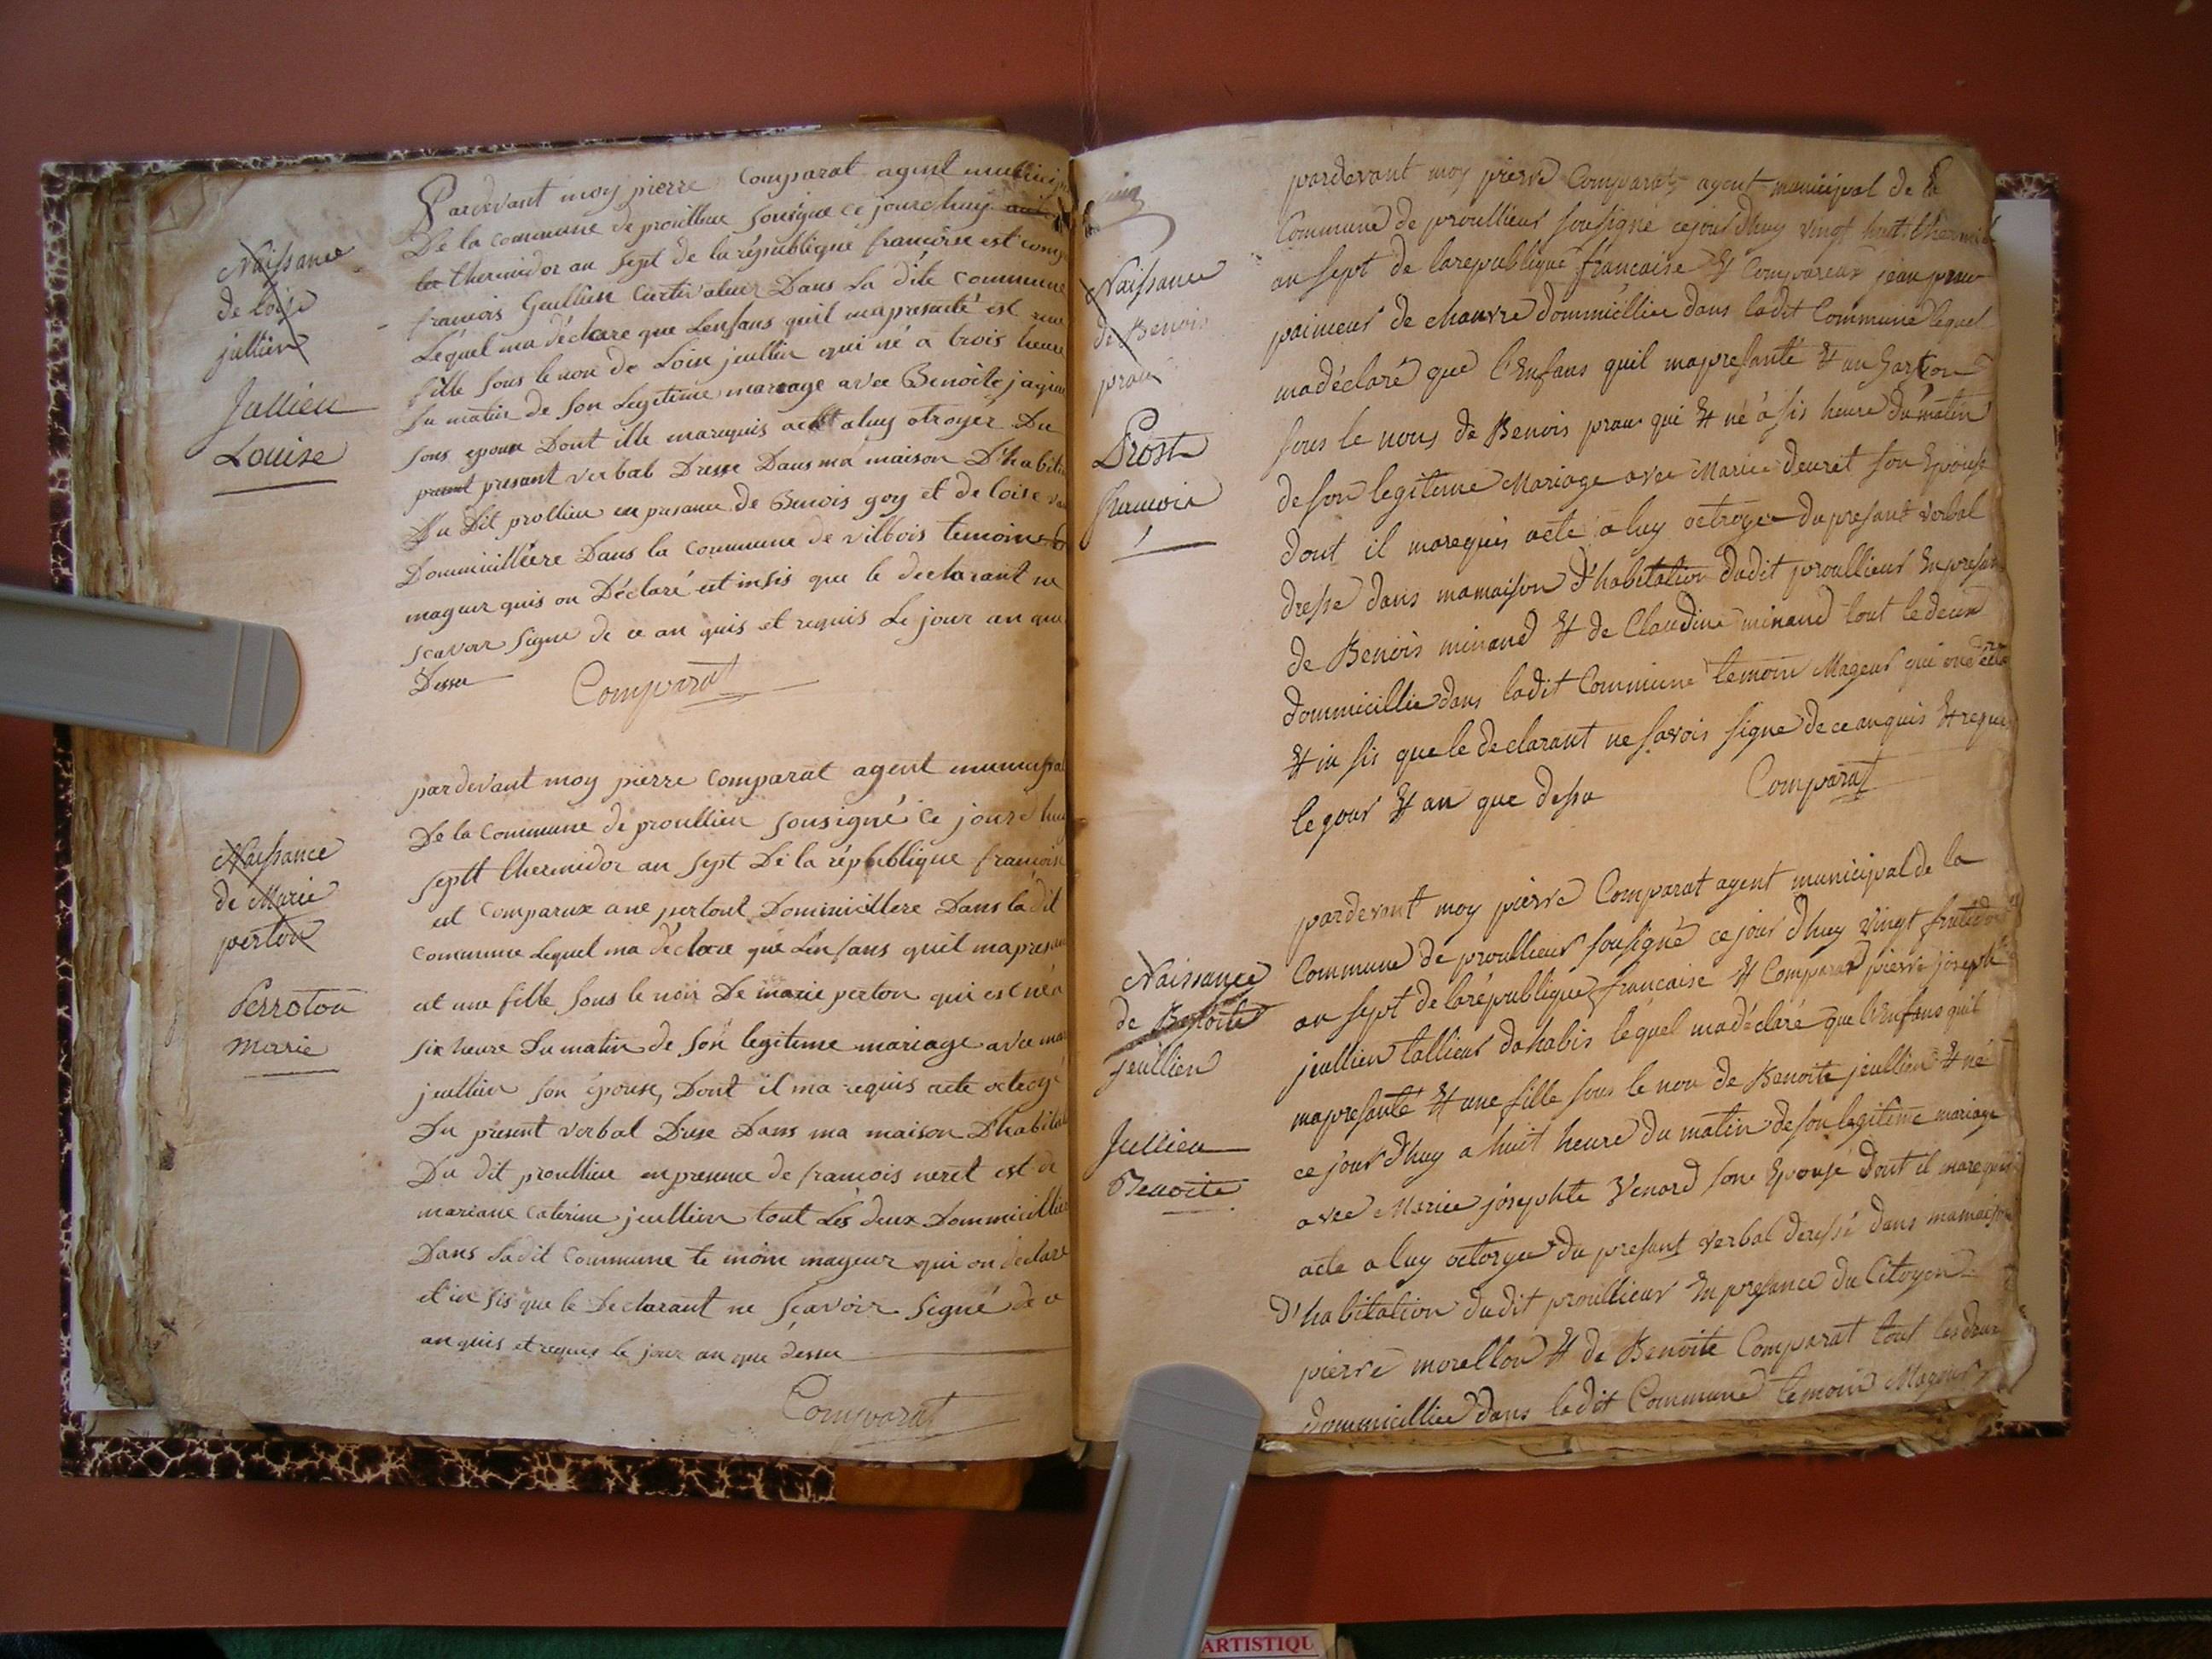 Naissance
de loise
jullien
Jullien
Louise
Pardevant moy pierre Comparat agent
De la commune de proullieu sousigne ce jourdhuy
thermidor an sept de la république francoise est
francois Geullien Curtivateur Dans La dite commune
Lequel ma déclare que Lenfans quil mapresanté est une
fille sous le non de Loise jeullin qui né a trois heure
Du matin de son Legitime mareage avec Benoite
sons epouse Dont ille marequis act aluy otroyer Du
presant verbal Dresse Dans ma maison
Du Dit prollieu en presance de Benois goy et de loise
Dommicilliere Dans la Commune de vilbois temoins
mageur quis on Déclaré et insis que le declarant ne
scavoir signe de ce an quis et requis Le jour an que
Dessu
Comparat
Naissance
de Marie
perton
Perroton
marie
pardevant moy pierre Comparat agent
De la Commune de proullieu sousigné Ce jourdhuy
septt thermidor an sept De la république francoise
est Comparux ane pertout Dominicillere Dans la dit
commune Lequel ma declare que Lenfans quil
est une fille sous le non De marie perton qui est né a
six heure Du matin de son legitime mariage avec
jeullien son épouse, Dont il ma requis acte octroyé
Du present verbal Dresse Dans ma maison
Du dit proullieu en presence de francois neret est de
mariane Caterine jeullien tout Les deux Dommicillie
Dans Ladit Commune te moin mageur qui on declare
et in sis que le Declarant ne scavoir signé de ce
an quis et requis le jour an que dessu
Comparat
Naissance
de Benois
prau
Prost
francois
pardevant moy pierre Comparat agent municipal de la
Commune de proullieur sousigné cejour dhuy vingt huit
an sept de larepublique francaise Et Compareux jean prau
paimeur de chanvre dommicillie dans ladit Commune lequel
madéclaré que l'Enfans quil mapresanté Et un Garson
sous le nous de Benois prau qui Et né a sis heure du matin
de son legiteme Mariage avec Marie deuret son Epouse
dont il marequis acte a luy octroyer du presant verbal
dresse dans mamaison d'habitation dudit proullieur
de Benois minand Et de Claudine minand tout le deux
dommicillie dans ladit Commune temoin Mageur qui
Et in sis que le declarant ne savois signe de ce anquis Et
le gour Et an que dessu
Comparat
Naissance
de Benoite
jeullien
Jullien
Benoite
pardevant moy pierre Comparat agent municipal de la
Commune de proullieur sousigné ce jour dhuy vingt
an sept de larépublique francaise Et Comparas pierre joseph
jeullien tallieur dahabis lequel madéclaré que l'Enfans quil
mapresanté Et une fille sous le non de Benoite jeullien Et né
ce jour dhuy a huit heure du matin de son legiteme mariage
avec Marie josephte Venard sone Epouse dont il marequis
acte a luy octorger du presant verbal deressé dans mamaison
D'habitation dudit proullieur En presance du Citoyen
pierre morellon Et de Benoite Comparat tout les deux
dommicillie dans ladit Commune temoin Mageur
ARTISTIQU